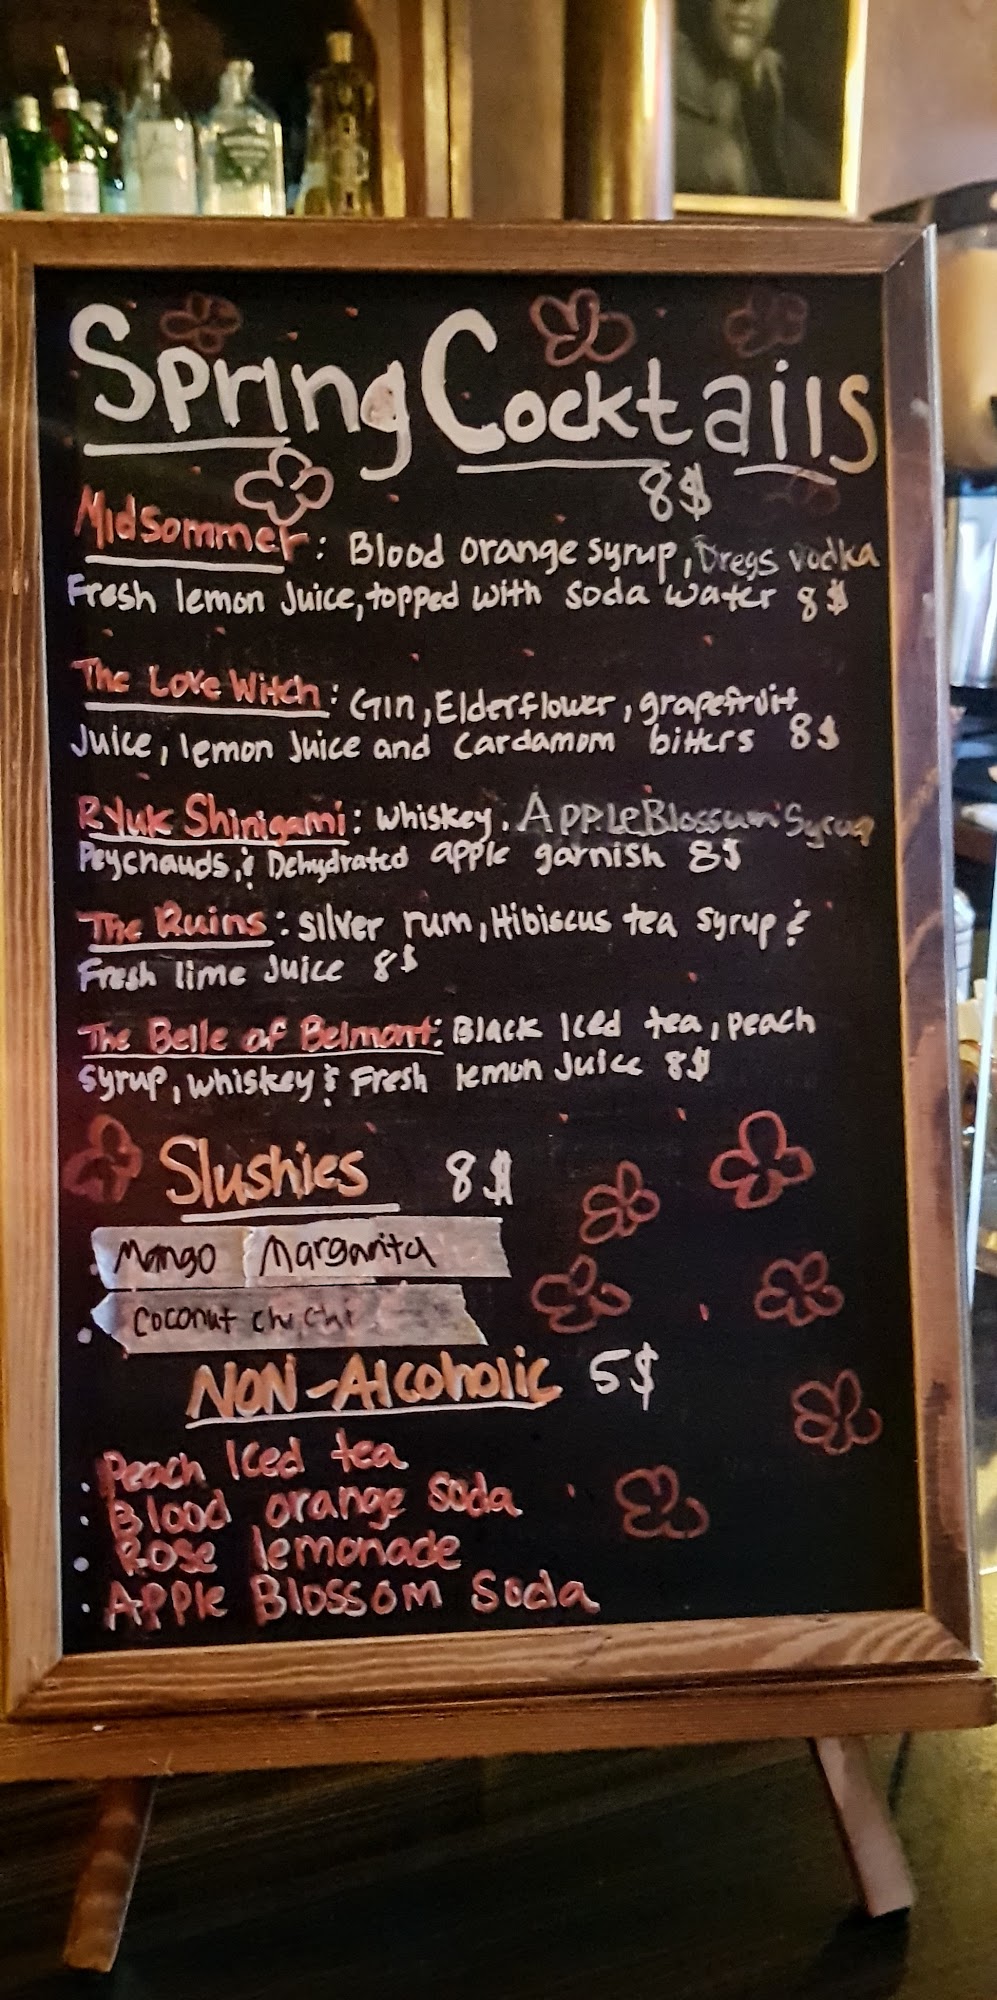 Spring Cocktails
8$
Midsommer: Blood orange syrup, Dregs vodka
Fresh lemon Juice, topped with soda water 8$
The Love Witch: Gin, Elderflower, grapefruit
Juice, lemon Juice and Cardamom bitters 8$
Ryuk Shinigami: whiskey, Apple Blossum Syrup
Peychauds, & Dehydrated apple garnish 8$
The Ruins: Silver rum, Hibiscus tea syrup &
Fresh lime Juice 8$
The Belle of Belmont: Black Iced tea, peach
syrup, whiskey & Fresh lemon Juice 8$
Slushies 8$
Mango Margarita
Coconut Chi Chi
NON-Alcoholic 5$
Peach Iced tea
Blood orange soda
Rose lemonade
Apple Blossom Soda